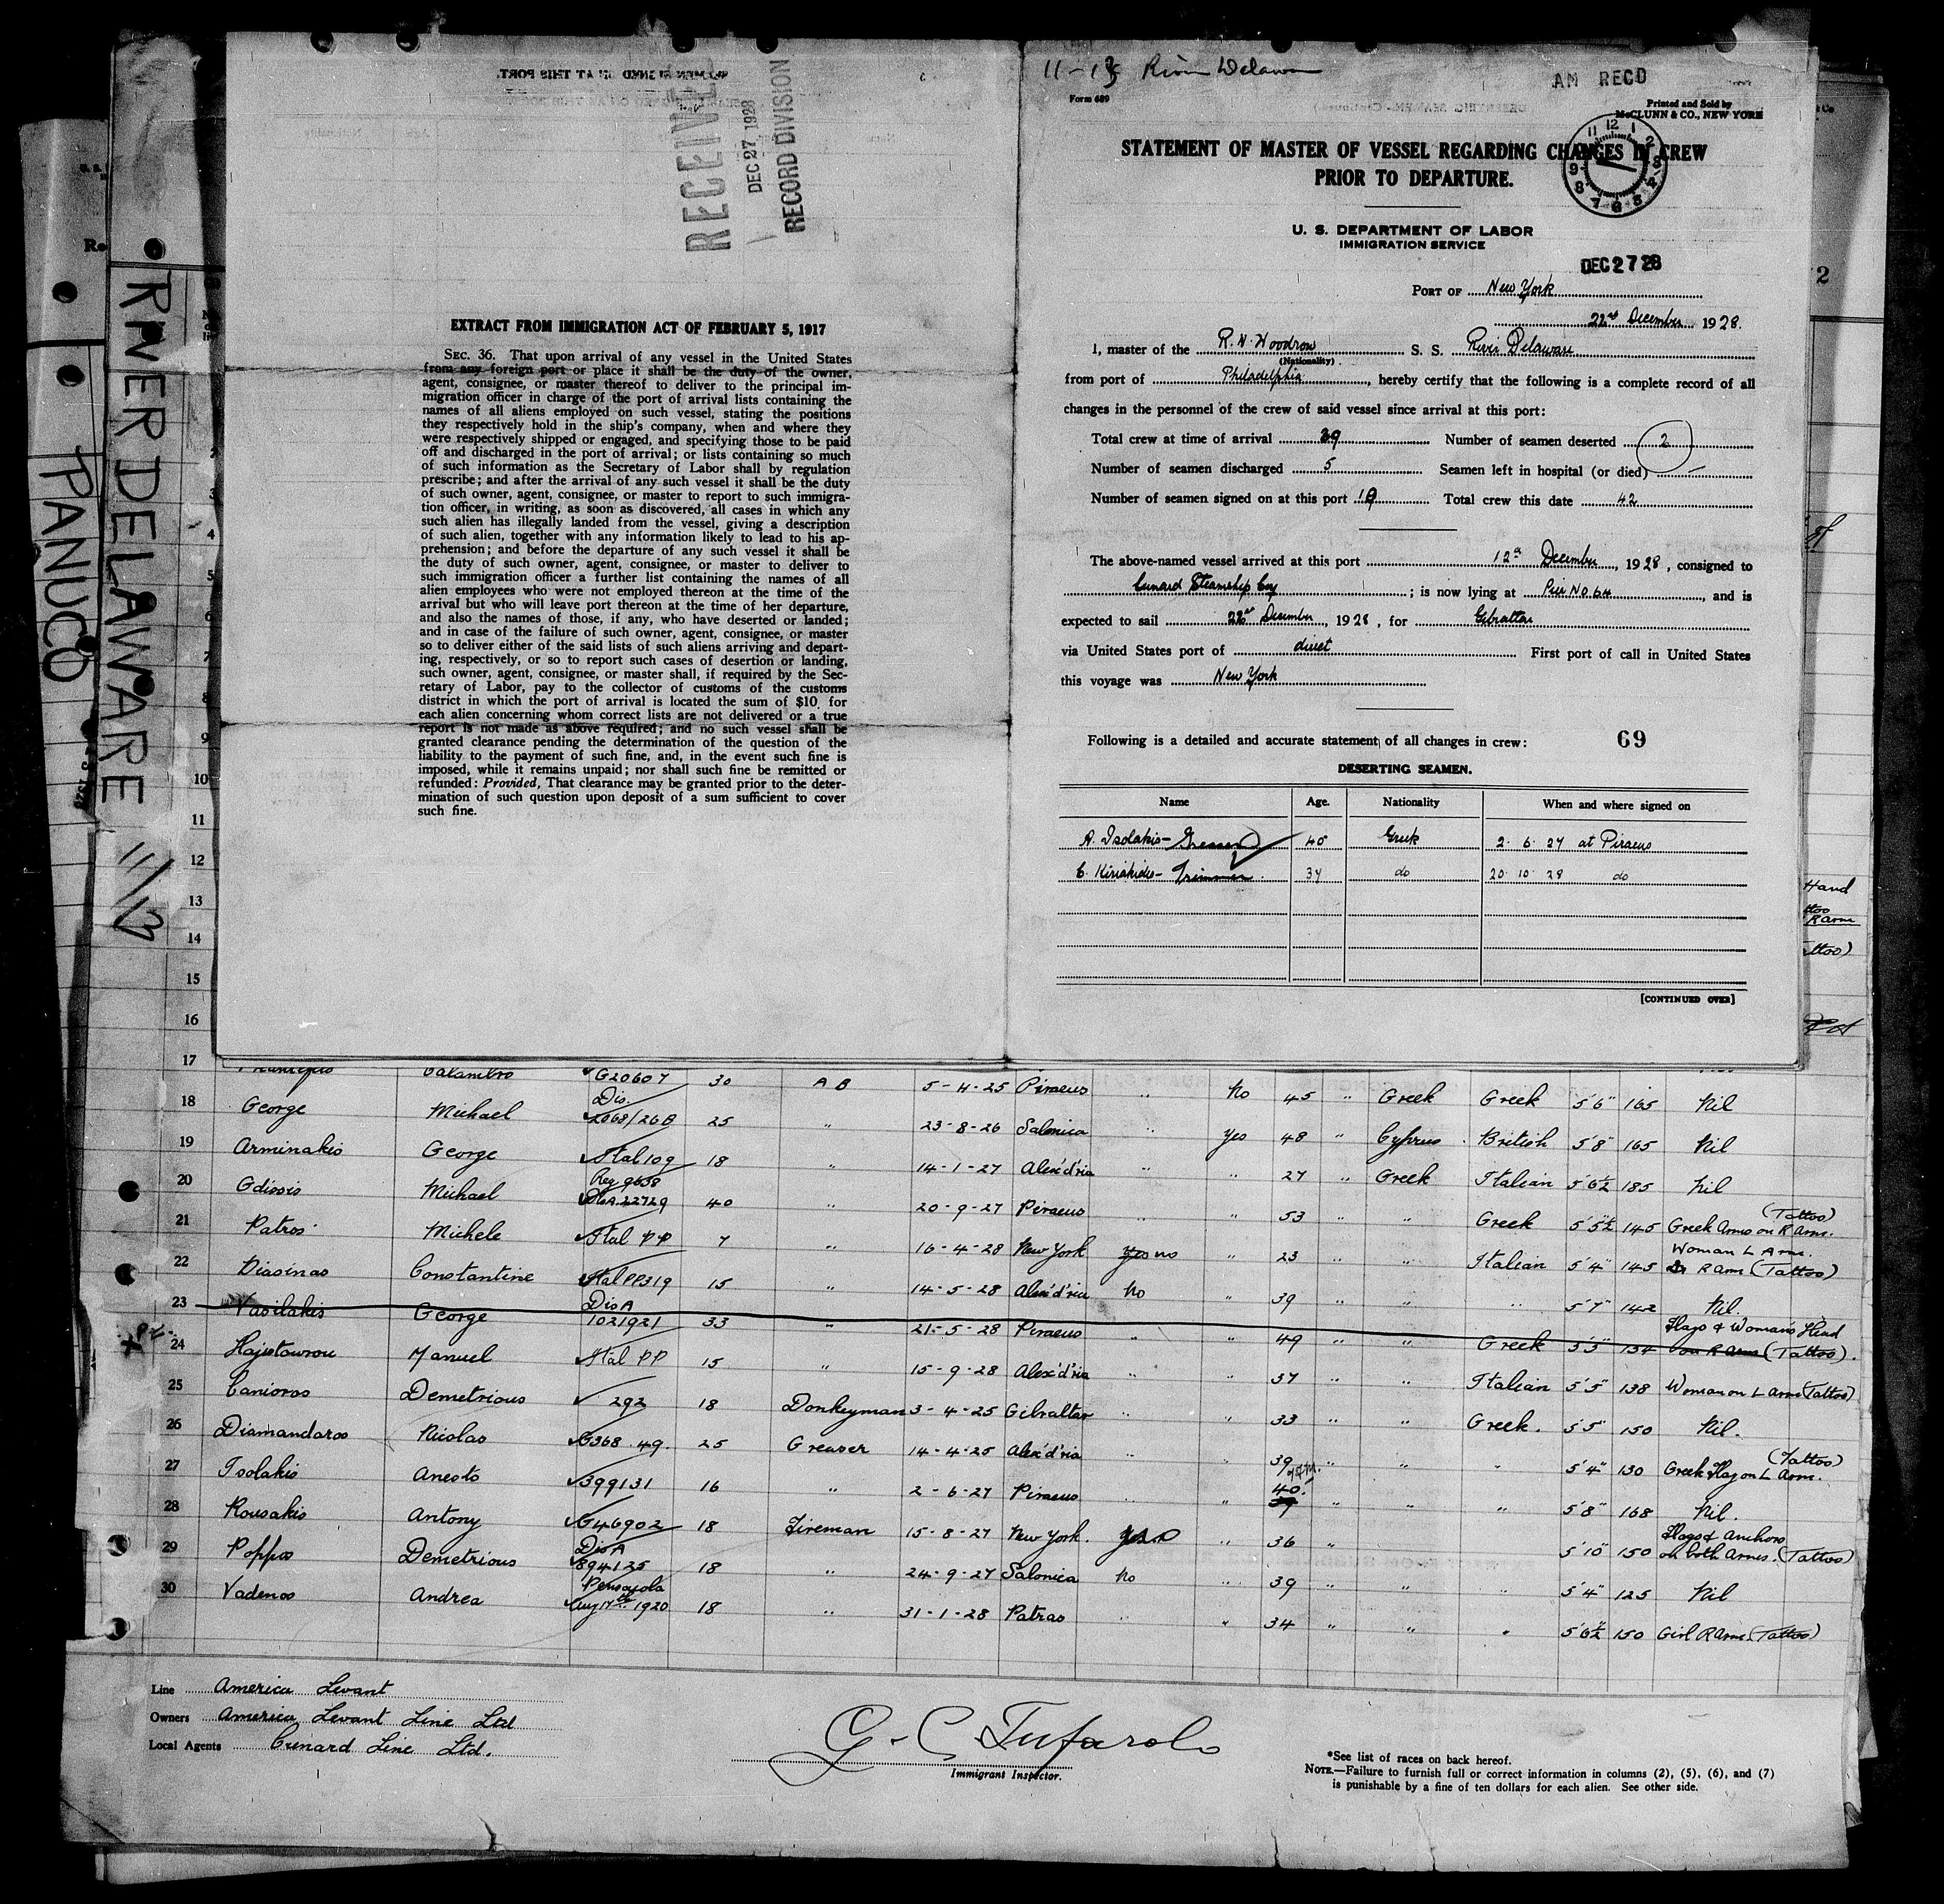 RIVER DELAWARE 11/13
PANUCO
RECEIVED
DEC 27 1928
RECORD DIVISION
EXTRACT FROM IMMIGRATION ACT OF FEBRUARY 5, 1917
SEC. 36. That upon arrival of any vessel in the United States
from any foreign port or place it shall be the duty of the owner,
agent, consignee, or master thereof to deliver to the principal im-
migration officer in charge of the port of arrival lists containing the
names of all aliens employed on such vessel, stating the positions
they respectively hold in the ship's company, when and where they
were respectively shipped or engaged, and specifying those to be paid
off and discharged in the port of arrival; or lists containing so much
of such information as the Secretary of Labor shall by regulation
prescribe; and after the arrival of any such vessel it shall be the duty
of such owner, agent, consignee, or master to report to such immigra-
tion officer, in writing, as soon as discovered, all cases in which any
such alien has illegally landed from the vessel, giving a description
of such alien, together with any information likely to lead to his ap-
prehension; and before the departure of any such vessel it shall be
the duty of such owner, agent, consignee, or master to deliver to
such immigration officer a further list containing the names of all
alien employees who were not employed thereon at the time of the
arrival but who will leave port thereon at the time of her departure,
and also the names of those, if any, who have deserted or landed;
and in case of the failure of such owner, agent, consignee, or master
so to deliver either of the said lists of such aliens arriving and depart-
ing, respectively, or so to report such cases of desertion or landing,
such owner, agent, consignee, or master shall, if required by the Sec-
retary of Labor, pay to the collector of customs of the customs
district in which the port of arrival is located the sum of $10 for
each alien concerning whom correct lists are not delivered or a true
report is not made as above required; and no such vessel shall be
granted clearance pending the determination of the question of the
liability to the payment of such fine, and, in the event such fine is
imposed, while it remains unpaid; nor shall such fine be remitted or
refunded: Provided, That clearance may be granted prior to the deter-
mination of such question upon deposit of a sum sufficient to cover
such fine.
River Delaware
AM RECD
Form 689
Printed and Sold by
McCLUNN & CO., NEW YORK
STATEMENT OF MASTER OF VESSEL REGARDING CHANGES IN CREW
PRIOR TO DEPARTURE.
U. S. DEPARTMENT OF LABOR
IMMIGRATION SERVICE
DEC 27 28
PORT OF New York
22nd December 1928.
I, master of the R. N. Woodrow S. S. River Delaware
(Nationality)
from port of Philadelphia, hereby certify that the following is a complete record of all
changes in the personnel of the crew of said vessel since arrival at this port:
Total crew at time of arrival 39 Number of seamen deserted 2
Number of seamen discharged 5 Seamen left in hospital (or died) –
Number of seamen signed on at this port 10 Total crew this date 42
The above-named vessel arrived at this port 12th December, 1928, consigned to
Cunard Steamship Coy; is now lying at Pier No 64, and is
expected to sail 22nd December, 1928, for Gibraltar
via United States port of direct First port of call in United States
this voyage was New York
Following is a detailed and accurate statement of all changes in crew: 69
DESERTING SEAMEN.
Name Age. Nationality When and where signed on
A. Isolakis - Greaser 40 Greek 2. 6. 27 at Piraeus
C. Kiriakides - Trimmer 34 do 20 10 28 do
[CONTINUED OVER]
10
11
12
13
14
15
16
17 Calambro G20607 30 A B 5-4-25 Piraeus " No 45 " Greek Greek 5'6" 165 Nil
18 George Michael Dis. 2068/26B 25 " 23-8-26 Salonica " Yes 48 " Cyprus British 5'8" 165 Nil
19 Arminakis George Ital 109 18 " 14-1-27 Alex'd'ria " " 27 " Greek Italian 5'6½ 185 Nil
20 Gdissis Michael Reg 9638 DisA 22729 40 " 20-9-27 Piraeus " " 53 " " Greek 5'5½ 145 Greek Arms on R Arm. (Tattoo)
21 Patros Michele Ital PP 7 " 16-4-28 New York yes no " 23 " " Italian 5'4" 145 Woman L Arm. R Arm (Tattoo)
22 Diasinas Constantine Ital PP319 15 " 14-5-28 Alex'd'ria No 39 " " " 5'7" 142 Nil.
23 Vasilakis George DisA 1021921 33 " 21-5-28 Piraeus " " 49 " " Greek 5'5" 134 Flags & Womans Head on R Arm (Tattoo).
24 Hajistavrou Manuel Ital PP 15 " 15-9-28 Alex'd'ria " " 37 " " Italian 5'5" 138 Woman on L Arm (Tattoo)
25 Canioros Demetrious 292 18 Donkeyman 3-4-25 Gibraltar " " 33 " " Greek. 5'5" 150 Nil.
26 Diamandaros Nicolas G368.49. 25 Greaser 14-4-25 Alex'd'ria 39 " " " 5'4" 130 Greek Flag on L Arm. (Tattoo)
27 Isolakis Anesto 399131 16 " 2-6-27 Piraeus " " 40. 39 " " " 5'8" 168 Nil.
28 Rousakis Antony G46902 18 Fireman 15-8-27 New York. " 36 " 5'10" 150 Flags & Anchors on both Arms. (Tattoo)
29 Pappas Demetrious DisA 894125 18 " 24-9-27 Salonica No " 39 " " " 5'4" 125 Nil
30 Vadenos Andrea Pensacola Aug 17th 1920 18 " 31-1-28 Patras " " 34 " " " 5'6½ 150 Girl R Arm (Tattoo)
Line America Levant
Owners America Levant Line Ltd
Local Agents Cunard Line Ltd.
G. C. Tufarolo
Immigrant Inspector.
*See list of races on back hereof.
NOTE.—Failure to furnish full or correct information in columns (2), (5), (6), and (7)
is punishable by a fine of ten dollars for each alien. See other side.